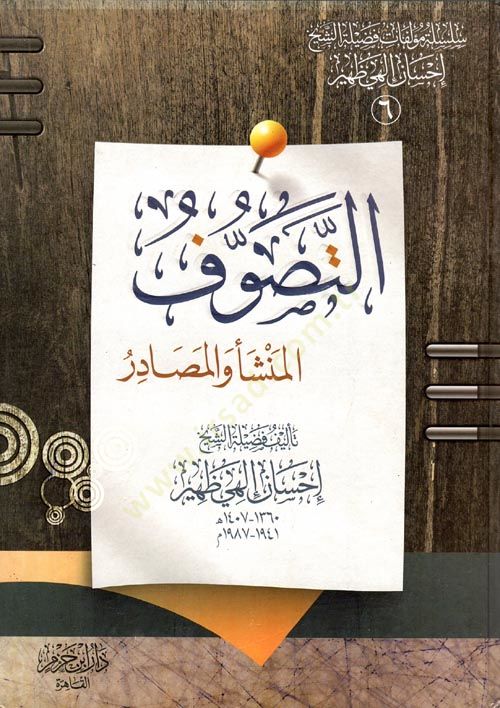 سلسلة مؤلفات فضيلة الشيخ
إحسان إلهي ظهير
٦
التَّصَوُّفُ
المَنْشَأ وَالمَصَادِرُ
تأليف فضيلة الشيخ
إحسان إلهي ظهير
١٣٦٠-١٤٠٧هـ
١٩٤١-١٩٨٧م
دار ابن حزم
القاهرة